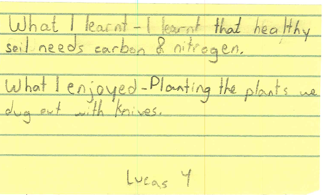 What I learnt - I learnt that healthy
soil needs carbon & nitrogen.
What I enjoyed - Planting the plants we
dug out with knives.
Lucas Y